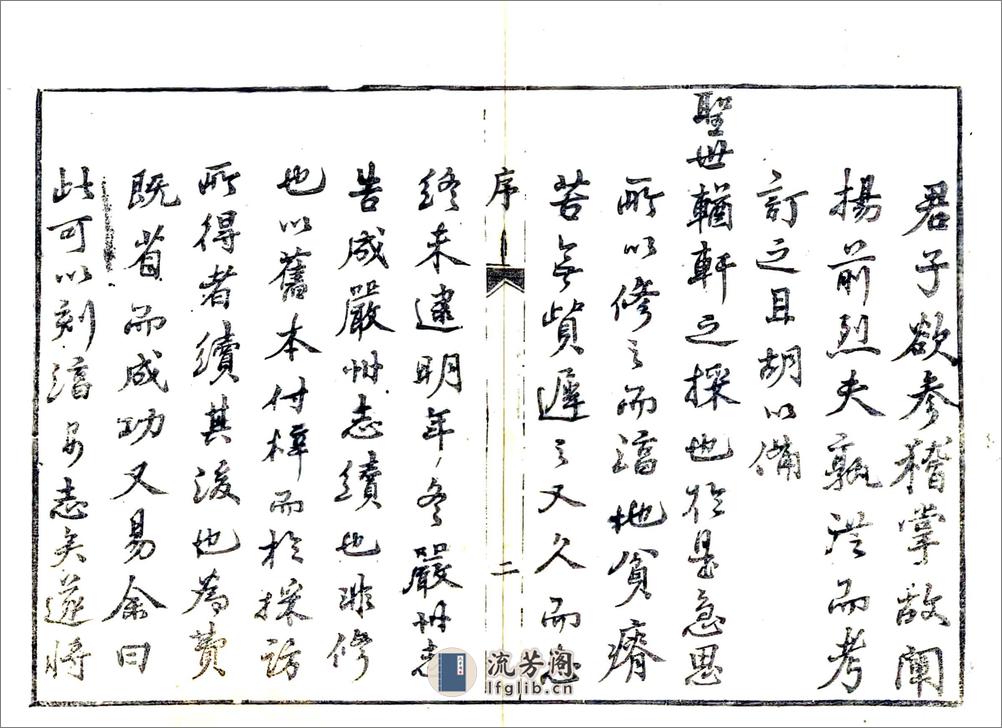 君子欲參稽掌故闡
揚前烈夫孰從而考
訂之且胡以備
聖世輶軒之採也於是急思
所以修之而淳地貧瘠
苦無貲遲之又久而志
序
二
終未逮明年冬嚴州志
告成嚴州志續也非修
也以舊本付梓而於採訪
所得者續其後也為費
既省而成功又易余曰
此可以刻淳安志矣遂將
流芳阁
lfglib.cn